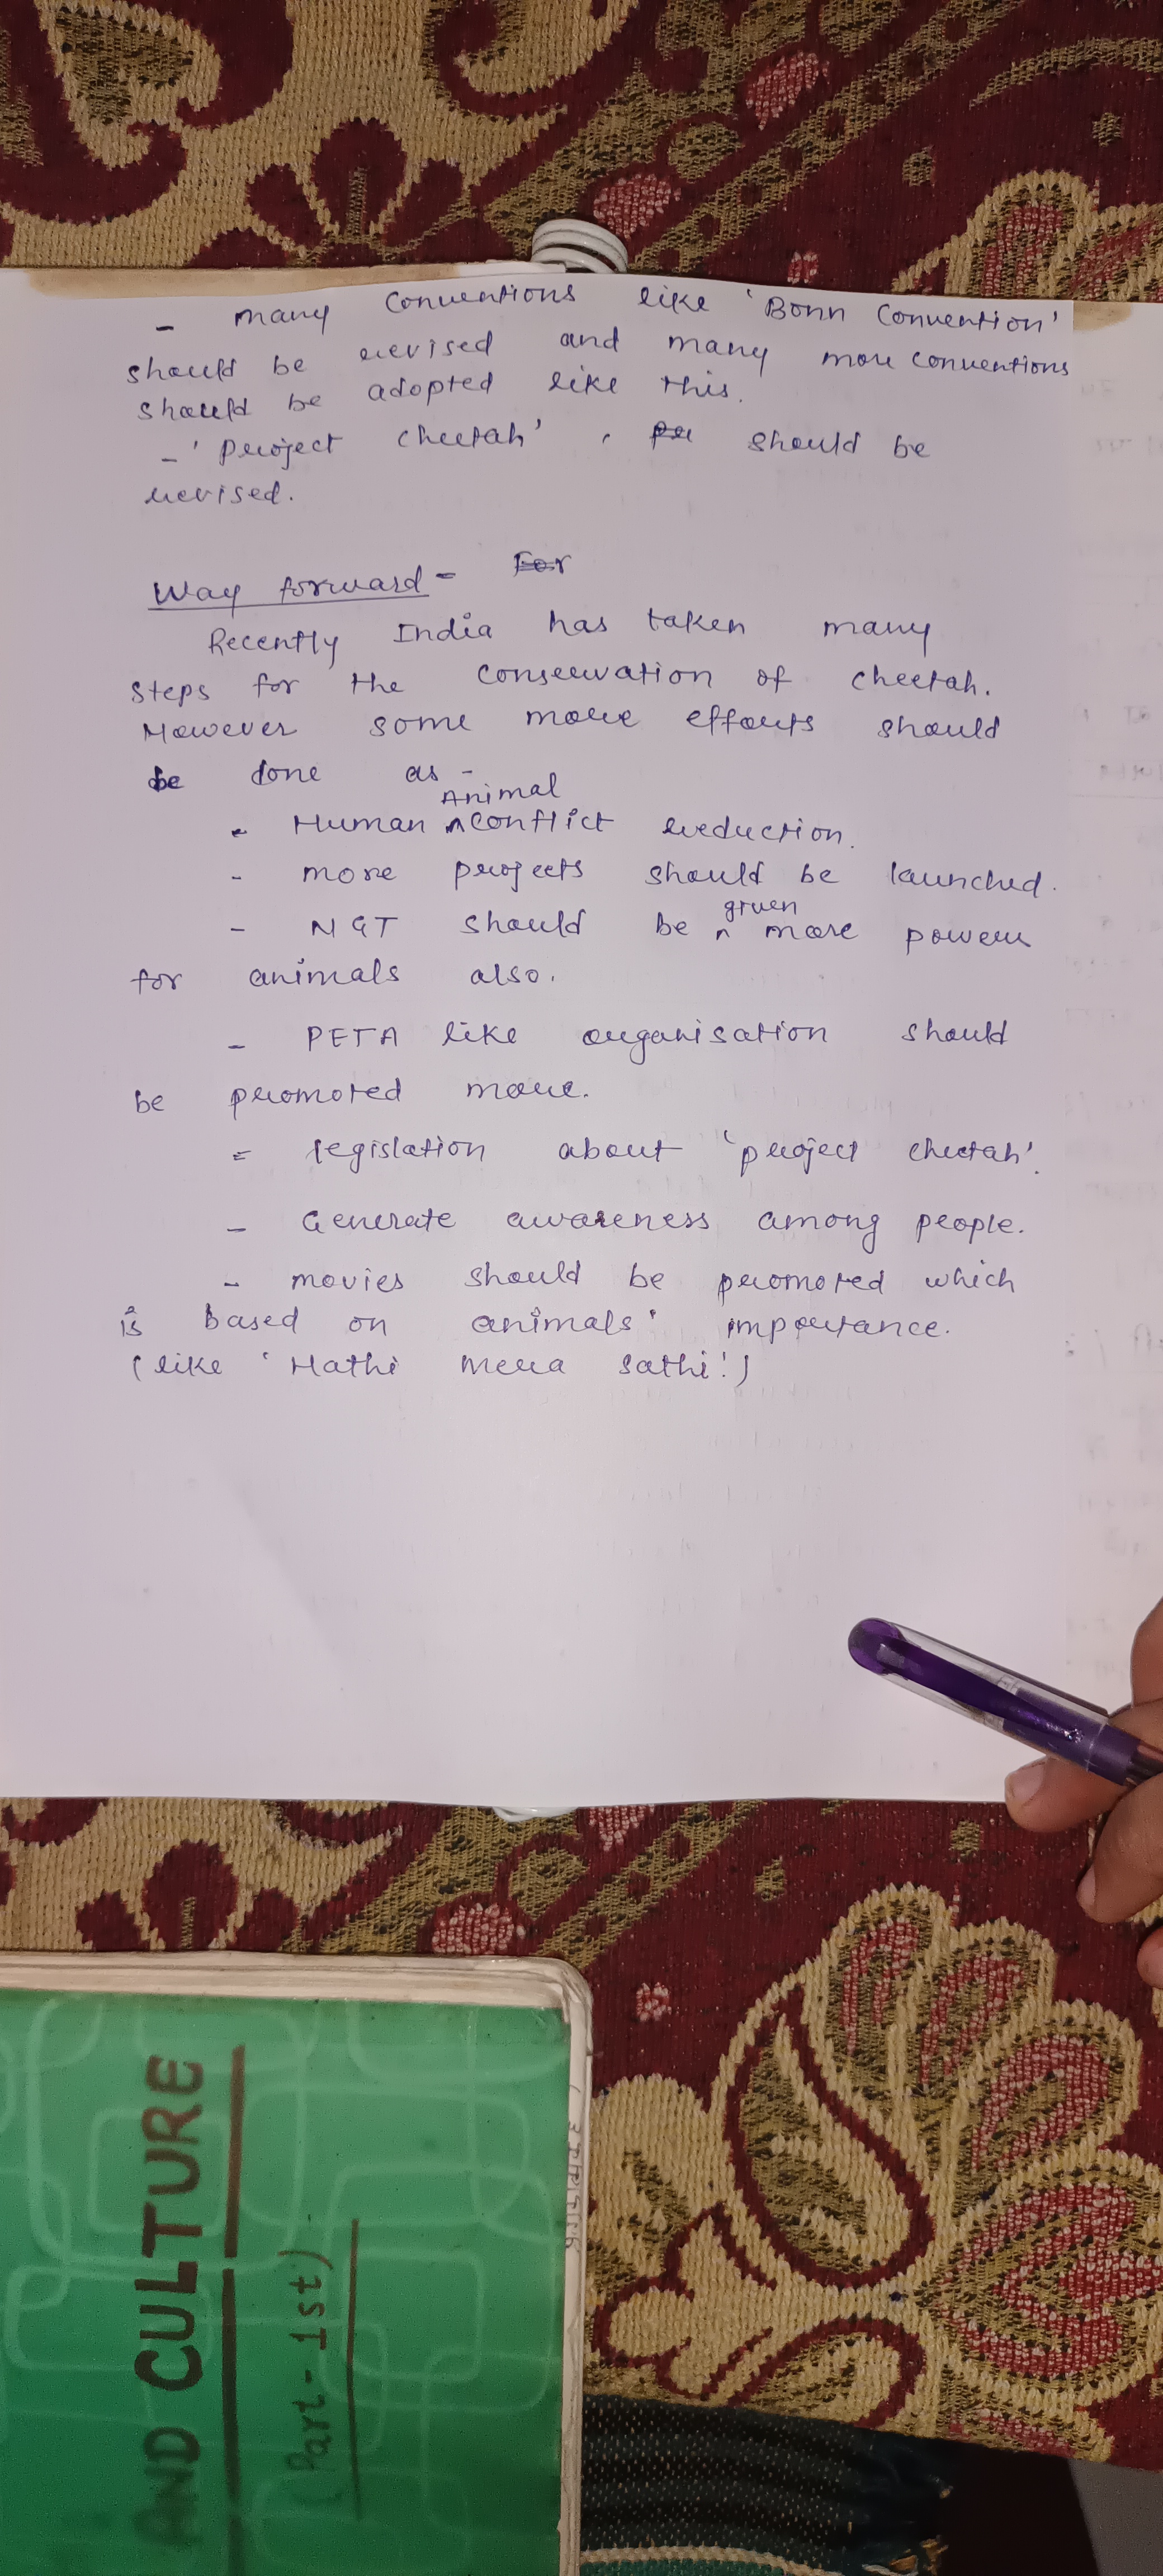 - many conventions like 'Bonn Convention'
should be revised and many more conventions
should be adopted like this.
- 'Project cheetah', should be
revised.
Way forward - For
Recently India has taken many
steps for the conservation of cheetah.
However some more efforts should
be done as -
- Human Animal conflict reduction.
- more projects should be launched.
- NGT should be given more power
for animals also.
- PETA like organisation should
be promoted more.
- legislation about 'project cheetah'.
- Generate awareness among people.
- movies should be promoted which
is based on animals' importance.
(like 'Hathi Mera Sathi'.)
AND CULTURE
(Part-1st)